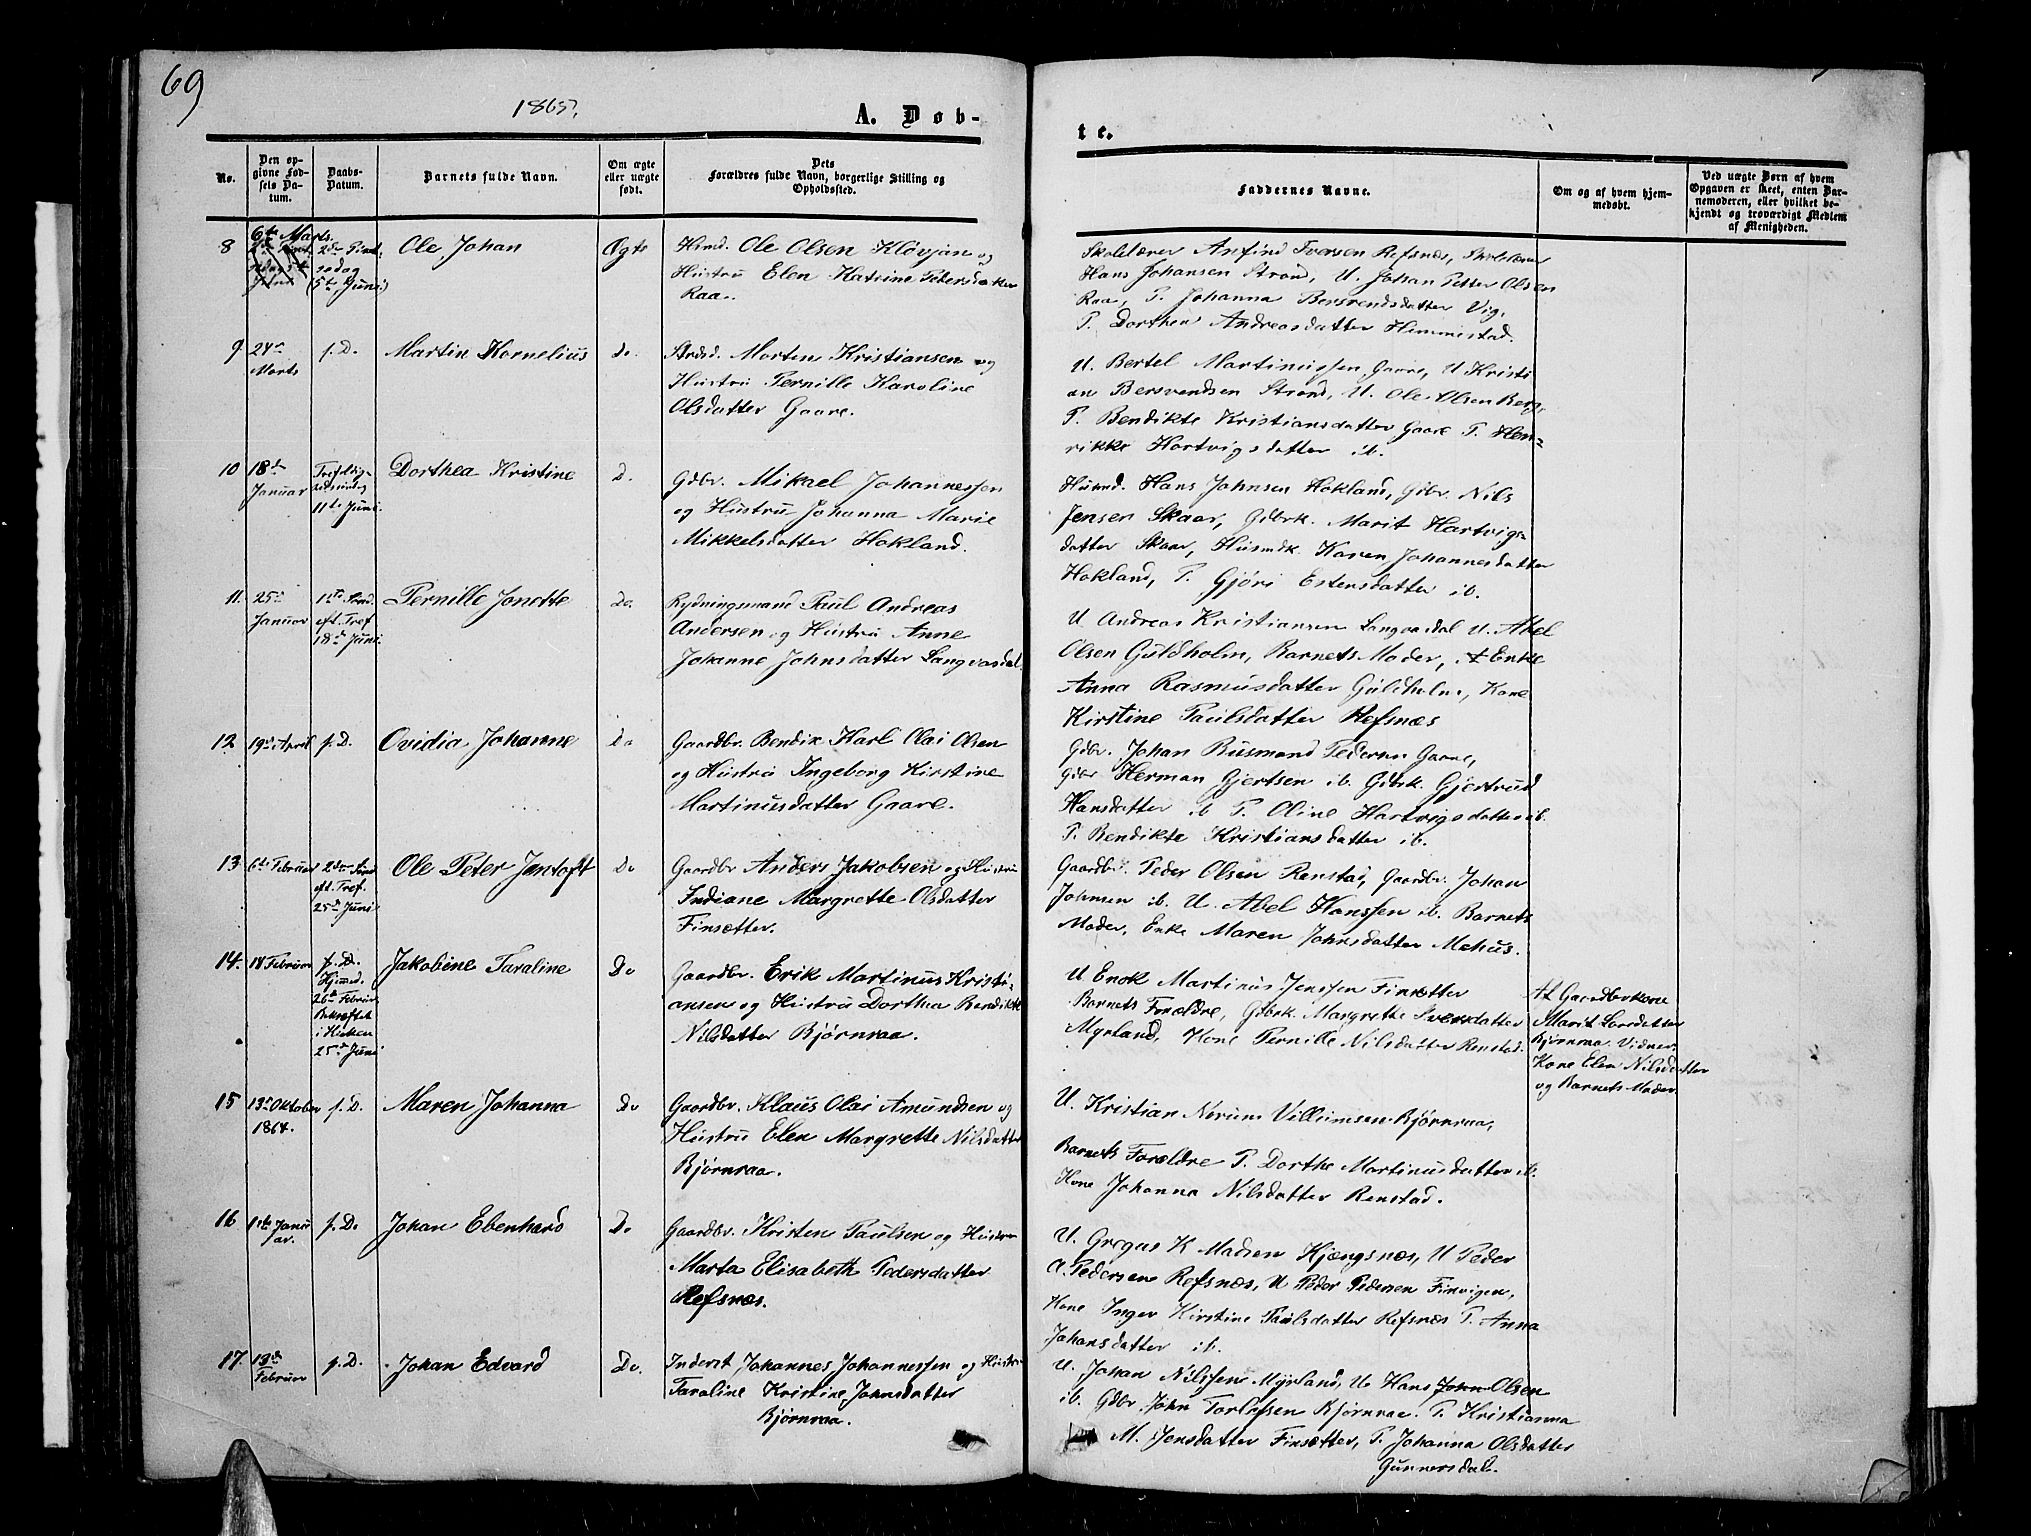 69
1865.
A. Døb-
No.
Den op-
givne Fød-
sels Da-
tum.
Daabs-
Datum.
Barnets fulde Navn.
Om ægte
eller uægte
født.
Dets
Forældres fulde Navn, borgerlige Stilling og
Opholdssted.
8
6te Marts
2den Pint-
sedag
(5te Juni)
Ole Johan
Ægte
Husmd. Ole Olsen Kløvjan og
Hustru Elen Katrine Pedersdatter
Raa.
9
24de
Marts
s. D.
Martin Kornelius
Do.
Strds. Morten Kristiansen og
Hustru Pernille Karoline
Olsdatter Gaare.
10
18de
Januar
Trefoldig-
hedssøndag
11te Juni
Dorthea Kristine
D.
Gdbr. Mikael Johannessen
og Hustru Johanna Marie
Mikkelsdatter Hokland.
11.
25de
Januar
1ste Sønd.
eft. Tref
18de Juni
Pernille Jonette
Do.
Rydningsmand Paul Andreas
Andersen og Hustru Anne
Johanne Johnsdatter Langvasdal
12
19de April
s. D.
Ovidia Johanne
Do
Gaardbr. Bendix Karl Olai Olsen
og Hustru Ingeborg Kirstine
Martinusdatter Gaare.
13
6te Februar
2den Sønd
eft. Tref.
25de Juni
Ole Peter Jentoft
Do
Gaardbr Anders Jakobsen og Hustru
Indiane Margrette Olsdatter
Finsætter.
14.
18 Februar
s. D.
Hjemmed.
26de Februar
Bekræftet
i Kirken
25de Juni
Jakobine Taraline
Do
Gaardbr. Erik Martinus Kristi-
ansen og Hustru Dorthea Bendikte
Nilsdatter Bjørnraa.
15
13de Oktober
1864.
s. D.
Maren Johanna
Do
Gaardbr. Klaus Olai Amundsen og
Hustru Elen Margrette Nilsdatter
Bjørnraa.
16
1ste Janu
ar.
s. D.
Johan Ebenhard
Do
Gaardbr. Kristen Paulsen og Hustru
Marta Elisabeth Pedersdatter
Refsnæs.
17.
13de
Februar
s. D.
Johan Edvard
Do.
Inderst Johannes Johannessen og Hustru
Taraline Kristine Johnsdatter
Bjørnraa.
te.
Faddernes Navne.
Om og af hvem hjem-
medøbt.
Ved uægte Børn af hvem
Opgaven er skeet, enten Bar-
nemoderen, eller hvilket be-
kjendt og troværdigt Medlem
af Menigheden.
Skolelærer Arfind Iversen Refsnæs, Skolelærer
Hans Johansen Strand, U. Johan Petter Olsen
Raa, P. Johanna Bersvendsdatter Vig,
P. Dorthea Andreasdatter Hemmestad.
U. Bertel Martinussen Gaare, U Kristi
an Bersvendsen Strand, U. Ole Olsen Berg,
P. Bendikte Kristiansdatter Gaare P. Hen-
rikke Hartvigsdatter ib.
Husmd. Hans Johnsen Hokland, Gdbr. Nils
Jensen Skaar, Gdbrk. Marit Hartvigs-
datter Skaar, Husmdk. Karen Johannesdatter
Hokland, P. Gjøri Estensdatter ib.
U Andreas Kristiansen Langvasdal U. Abel
Olsen Guldholm, Barnets Moder, Enke
Anna Rasmusdatter Guldholm, Kone
Kirstine Paulsdatter Refsnæs
Gdbr. Johan Rusmand Pedersen Gaare,
Gdbr Herman Gjertsen ib. Gdbrk. Gjertrud
Hansdatter ib P. Oline Hartvigsdatter ib.
P. Bendikte Kristiansdatter ib.
Gaardbr. Peder Olsen Renstad, Gaardbr. Johan
Johnsen ib. U. Abel Hanssen ib. Barnets
Moder, Enke Maren Johnsdatter Mehus.
U Enok Martinus Jenssen Finsætter
Barnets Forældre, Gdbrk. Margrethe Sversdatter
Myrland, Kone Pernille Nilsdatter Renstad.
Af Gaardbrkone
Marit Larsdatter
Bjørnraa. Vidner
Kone Elen Nilsdatter
og Barnets Moder
U. Kristian Norum Villumsen Bjørnraa,
Barnets Forældre P. Dorthe Martinusdatter ib.
Kone Johanna Nilsdatter Renstad.
U. Gregus K Madsen Kjængsnæs, U Peder
A. Pedersen Refsnæs, U Peder Pedersen Finvigen,
Kone Inger Kirstine Paulsdatter Refsnæs P. Anna
Johansdatter ib.
U. Johan Nilssen Myrland, U. Hans John Olsen
ib. Gdbr. John Torlefsen Bjørnraa. P. Kristianna
M. Jensdatter Finsætter, P. Johanna Olsdatter
Gunnersdal.